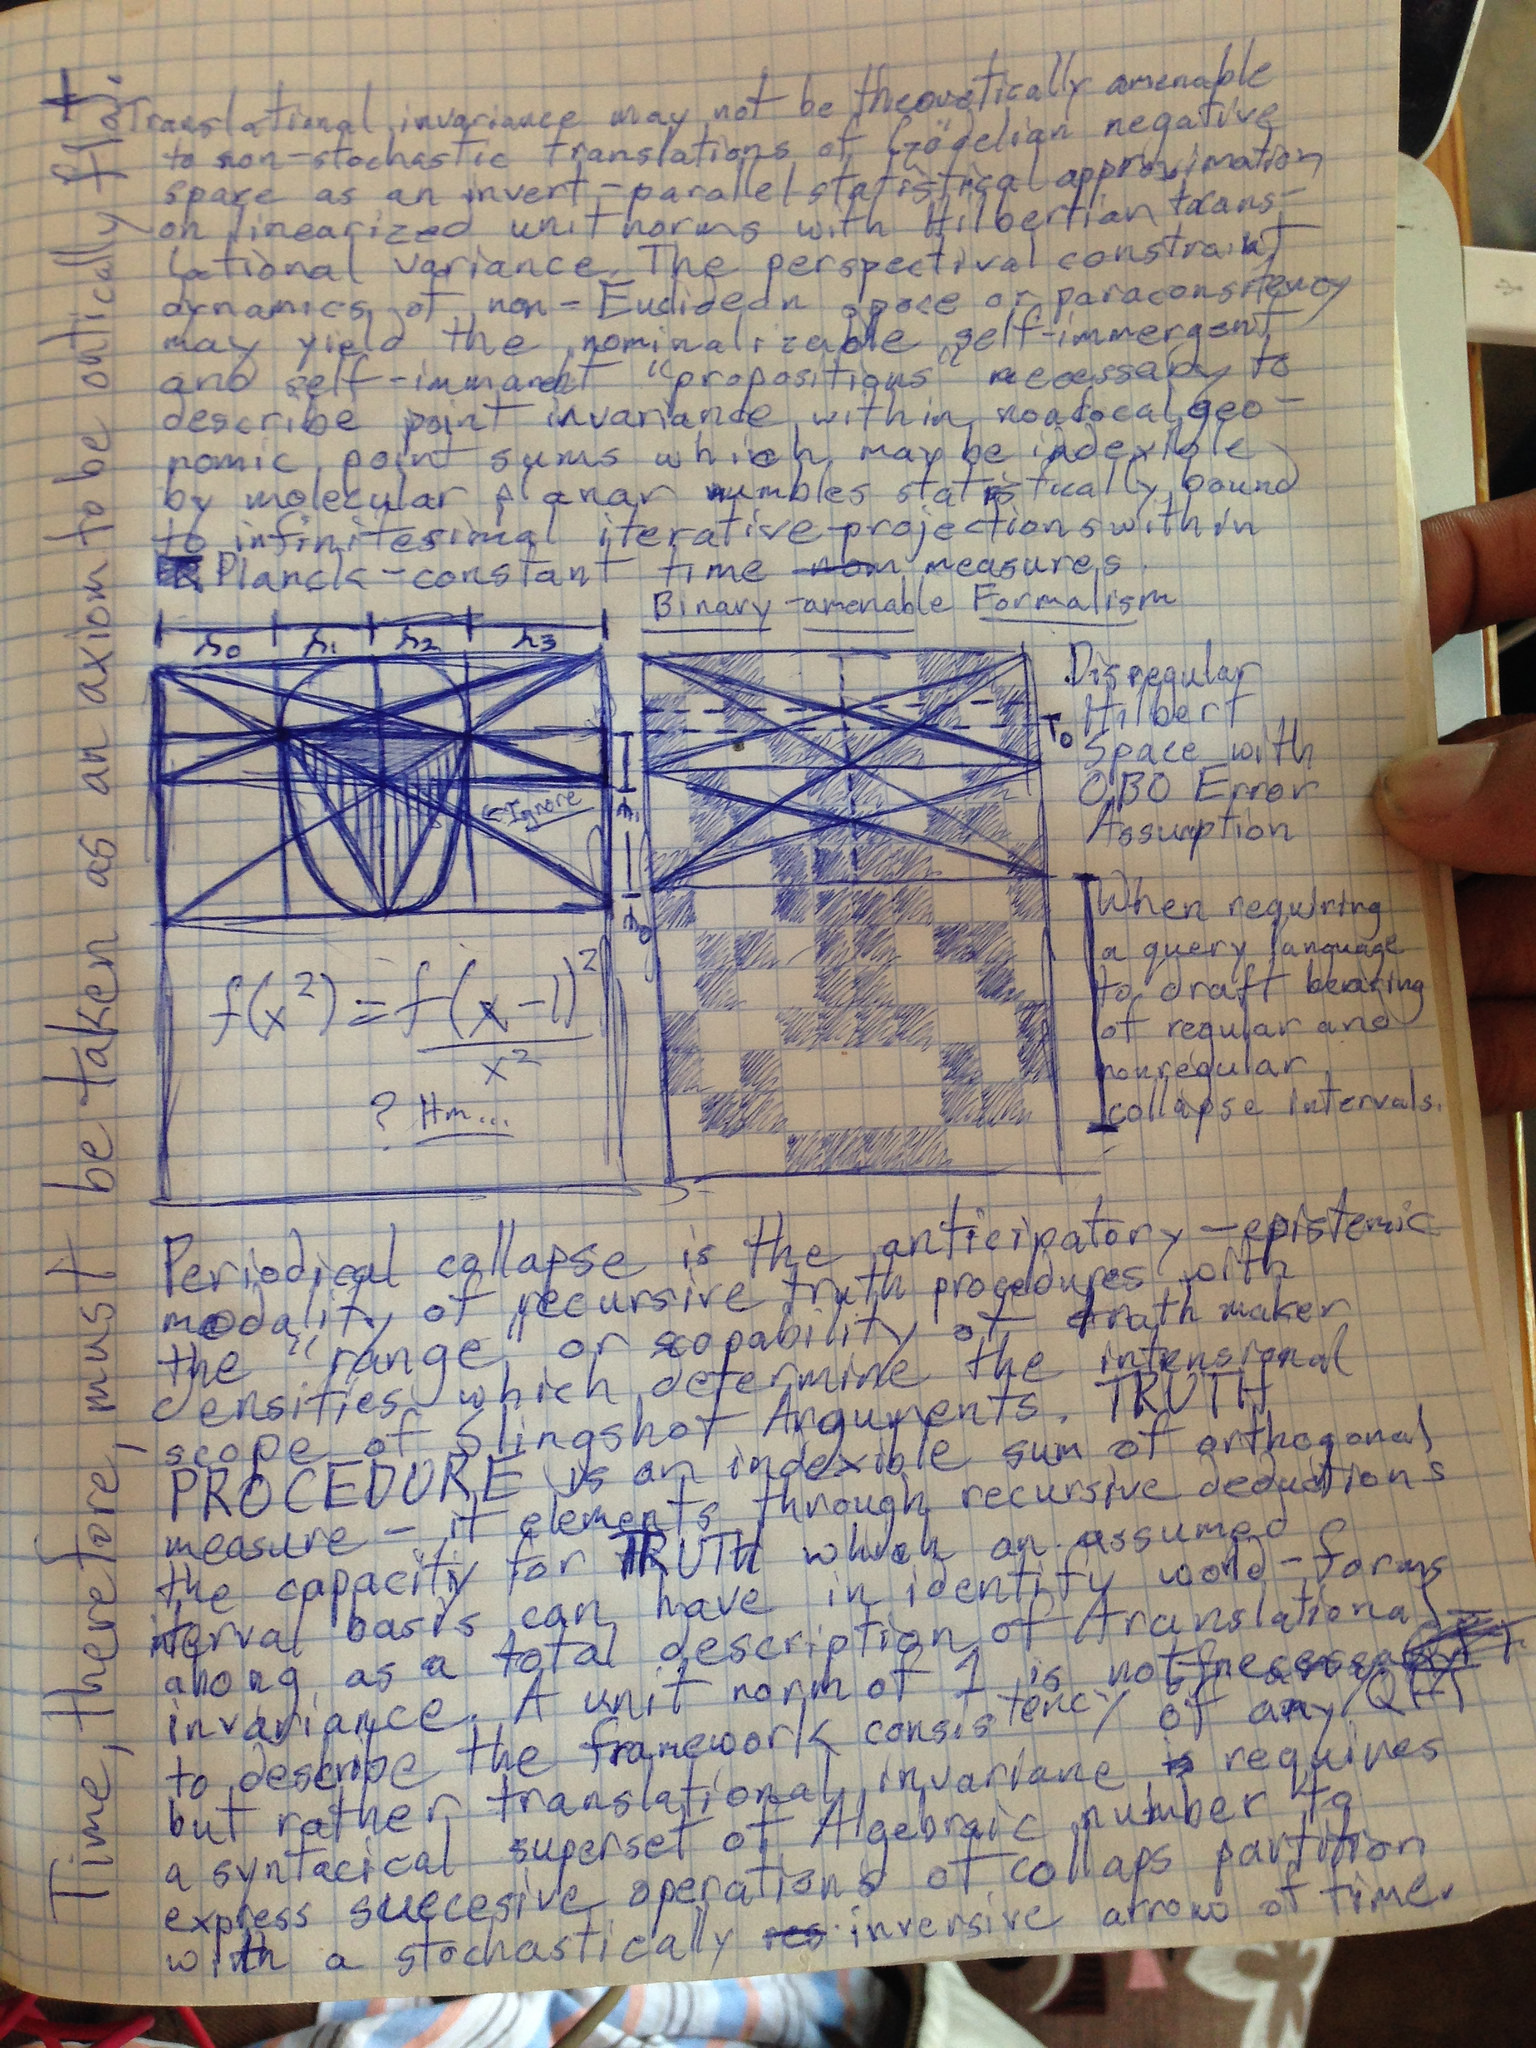 Translational invariance may not be theoretically amenable
to non-stochastic translations of Gödelian negative
space as an invert-parallel statistical approximation
on linearized unit norms with Hilbertian trans-
lational variance. The perspectival constraint
dynamics of non-Euclidean space or paraconsistency
may yield the nominalizable self-immergent
and self-immanent "propositions" necessary to
describe point invariance within nonlocal geo-
nomic point sums which may be indexible
by molecular planar numbles statistically bound
to infinitesimal iterative projections within
Planck-constant time measures.
Binary-amenable Formalism
h0 h1 h2 h3
T0
←Ignore
Disregular
Hilbert
Space with
OBO Error
Assumption
When requiring
a query language
to draft bearing
of regular and
nonregular
collapse intervals.
f(x²) = f(x-1)²
x²
? Hm...
Periodical collapse is the anticipatory-epistemic
modality of recursive truth procedures with
the "range" or scopability of truth maker
densities which determine the intensional
scope of Slingshot Arguments. TRUTH
PROCEDURE is an indexible sum of orthogonal
measure - it elements through recursive deductions
the capacity for TRUTH which an assumed
interval basis can have in identify world-forms
among as a total description of translational
invariance. A unit norm of 1 is not
to describe the framework consistency of any QHT
but rather translational invariane requires
a syntacical superset of Algebraic number to
express succesive operations of collaps partition
with a stochastically inversive arrow of time.
Time, therefore, must be taken as an axiom to be ontically flat.